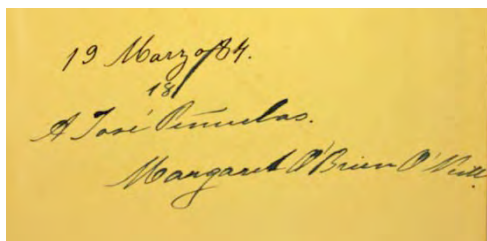 19 Marzo/84.
18
A José Piñuelas.
Margaret O'Brien O'Neill.